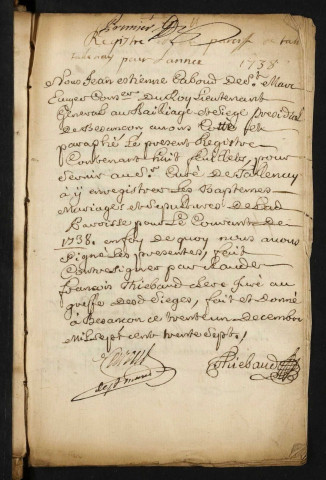 Premier
Registre de la paroisse de
pour l'année 1738
Nous Jean Etienne Caboud de St Marc
Conser du Roy Lieutenant
General au Bailliage et Siege Presidial
de Besancon avons Cotté et
paraphé Le present Registre
Contenant huit feüillets, pour
servir au Sr Curé de Tallenay
a y enregistrer Les Baptemes
Mariages et Sepultures de Lad
Paroisse pour Le Courant de
1738. en foy de quoy nous avons
signé Les presentes, fait
Contresigner par Claude
françois Thiebaud Clerc juré au
greffe desd Sieges, fait et donné
a Besancon ce trente un Decembre
mil sept cent trente sept,
de St marc
Thiebaud